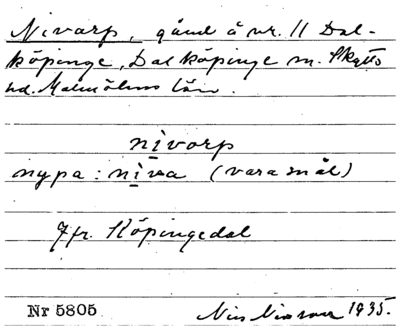 Nivarp, gånd å nr. 11 Dal-
köpinge, Dalköpinge sn. Skytts
hd. Malmöhus län.
nivarp
nypa: niva (vara mål)
Jfr. Köpingedal
Nr 5805 Nils Nilsson 1935.